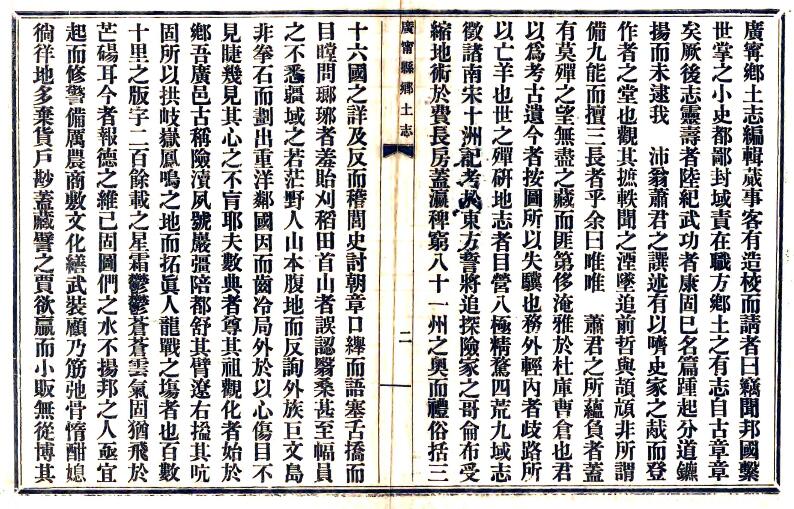 廣甯鄉土志編輯蕆事客有造棱而請者曰竊聞邦國繫
世掌之小史都鄙封域責在職方鄉土之有志自古章章
矣厥後志靈壽者陸紀武功者康固已名篇踵起分道鑣
揚而未逮我　沛翁蕭君之譔述有以嚌史家之胾而登
作者之堂也觀其摭軼聞之湮墜追前哲與頡頏非所謂
備九能而擅三長者乎余曰唯唯　蕭君之所蘊負者蓋
有莫殫之望無盡之藏而匪第侈淹雅於杜庫曹倉也君
以爲考古遺今者按圖所以失驥也務外輕內者歧路所
以亡羊也世之殫研地志者目營八極精騖四荒九域志
徵諸南宋十洲記考从東方謷將追探險家之哥侖布受
縮地術於費長房蓋瀛稗窮八十一州之奧而禮俗括三
廣甯縣鄉土志
二
十六國之詳及反而稽閭史討朝章口纏而語塞舌撟而
目瞠問瑯琊者羞貽刈稻田首山者誤認翳桑甚至幅員
之不悉疆域之若茫野人山本腹地而反詢外族巨文島
非拳石而劃出重洋鄰國因而齒冷局外於以心傷目不
見睫幾見其心之不盲耶夫數典者尊其祖觀化者始於
鄉吾廣邑古稱險瀆夙號嚴彊陪都舒其臂遼右搤其吭
固所以拱岐嶽鳳鳴之地而拓眞人龍戰之場者也百數
十里之版宇二百餘載之星霜鬱鬱蒼蒼雲氣固猶飛於
芒碭耳今者報德之維已固圖們之水不揚邦之人亟宜
起而修警備厲農商敷文化繕武裝顧乃筋弛骨惰酣媳
徜徉地多棄貨戶尠蓋藏譬之賈欲贏而小販無從博其